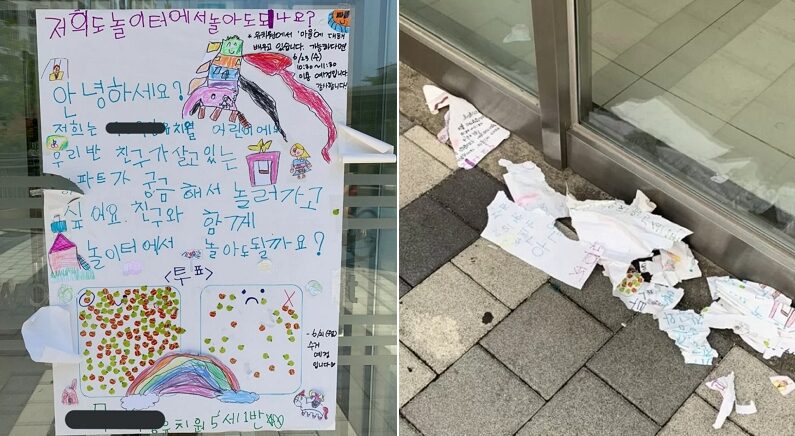 저희도 놀이터에서 놀아도 되나요?
* 유치원에서 '마을'에 대해
배우고 있습니다. 가능하다면
6/23(수)
10:30~11:30
이용 예정입니다
감사합니다!
안녕하세요?
저희는 유치원 어린이에요
우리 반 친구가 살고 있는
파트가 궁금해서 놀러가고
싶어요. 친구와 함께
놀이터에서 놀아도 될까요?
<투표>
X
수거
예정
입니다
유치원 5세 1반